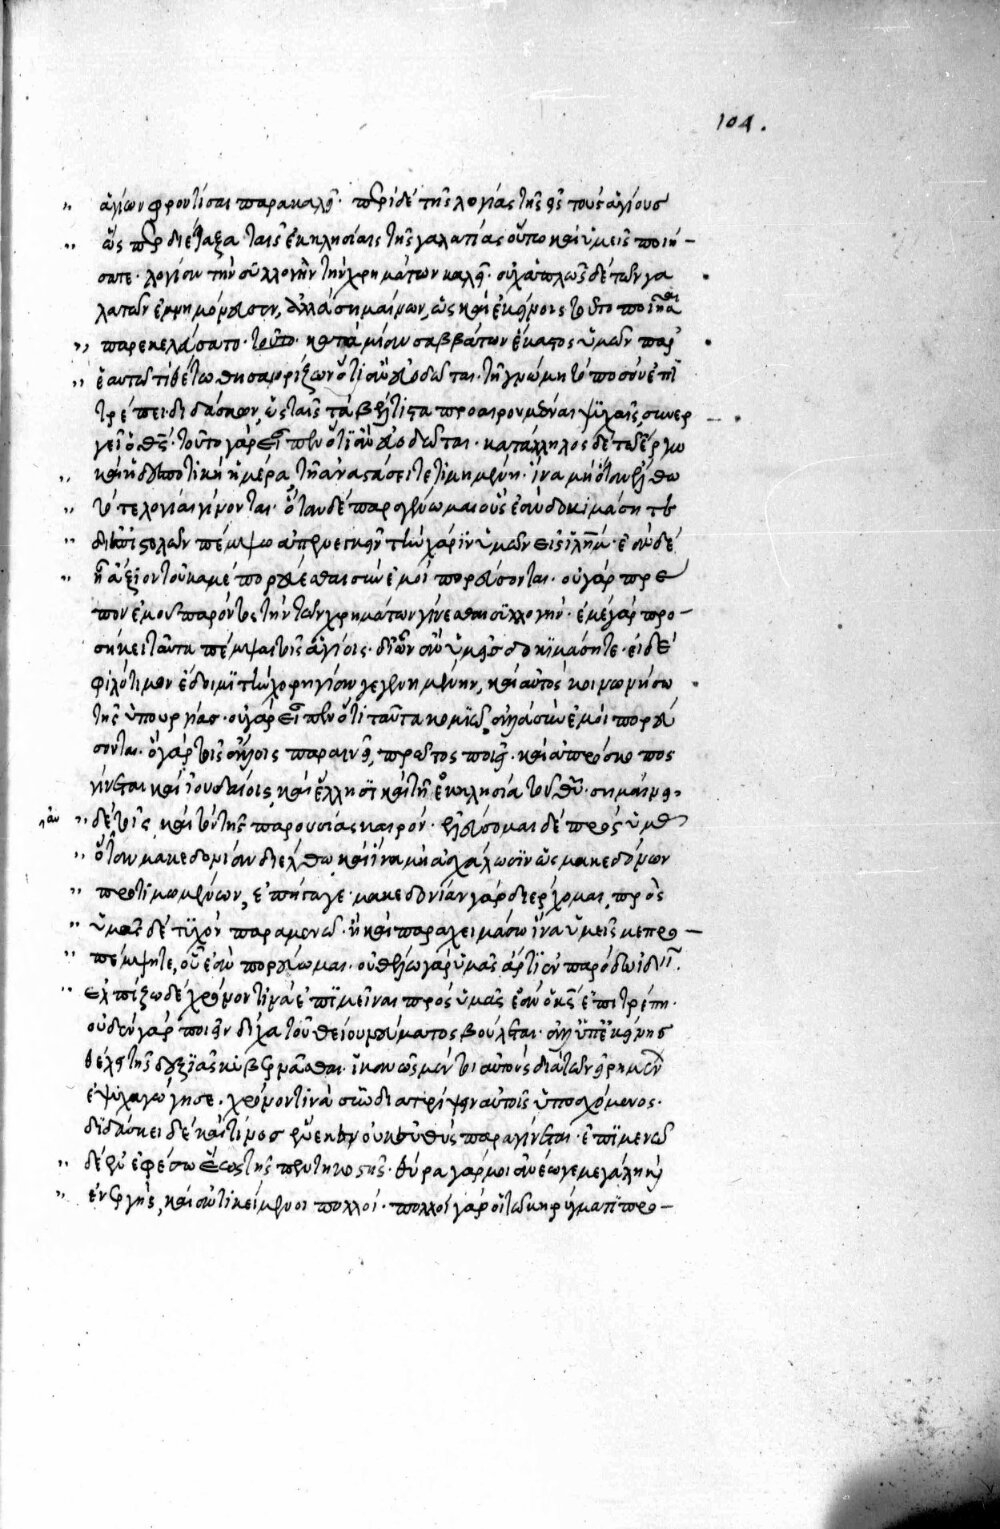 104.
ἁγίων φροντίσαι παρακαλεῖ· περὶ δὲ τῆς λογίας τῆς εἰς τοὺς ἁγίους
ὥσπερ διέταξα ταῖς ἐκκλησίαις τῆς γαλατίας οὕτω καὶ ὑμεῖς ποιή-
σατε· λογίαν τὴν συλλογὴν τῶν χρημάτων καλεῖ· οὐχ ἁπλῶς δὲ τῶν γα
λατῶν ἐμνημόνευσεν, ἀλλὰ σημαίνων, ὡς καὶ ἐκείνοις τοῦτο ποιῆσαι
παρεκελεύσατο· τοῦτο· κατὰ μίαν σαββάτων ἕκαστος ὑμῶν παρ'
ἑαυτῷ τιθέτω θησαυρίζων ὅ τι ἂν εὐοδῶται· τῇ γνώμῃ τὸ ποσὸν ἐπι
τρέπει· διδάσκων, ὡς ταῖς τὰ βέλτιστα προαιρουμέναις ψυχαῖς, συνερ
γεῖ ὁ θς· τοῦτο γὰρ εἶπεν ὅ τι ἂν εὐοδῶται· κατάλληλος δὲ τῷ ἔργῳ
καὶ ἡ δεσποτικὴ ἡμέρα, τῇ ἀναστάσει τετιμημένη· ἵνα μὴ ὅταν ἔλθω
τότε λογίαι γίνονται· ὅταν δὲ παραγένωμαι οὓς ἐὰν δοκιμάσητε
δι' ἐπιστολῶν πέμψω ἀπενεγκεῖν τὴν χάριν ὑμῶν εἰς ἱλημ· ἐὰν δὲ
ᾖ ἄξιον τοῦ κἀμὲ πορεύεσθαι σὺν ἐμοὶ πορεύσονται· οὐ γὰρ πρέ
πον ἐμοῦ παρόντος τὴν τῶν χρημάτων γίνεσθαι συλλογήν· ἐμὲ γὰρ προ-
σήκει ταῦτα πέμψαι τοῖς ἁγίοις· δι' ὧν ἂν ὑμεῖς δοκιμάσητε· εἰ δὲ
φιλότιμον ἔδοιμι τὴν χορηγίαν γεγενημένην, καὶ αὐτὸς κοινωνήσω
τῆς ὑπουργίας· οὐ γὰρ εἶπεν ὅτι ταῦτα κομιῶ, ἀλλὰ σὺν ἐμοὶ πορεύ
σονται· ὃ γὰρ τοῖς ἄλλοις παραινεῖ, πρῶτος ποιεῖ· καὶ ἀπρόσκοπος
γίνεται καὶ ἰουδαίοις, καὶ ἕλλησι καὶ τῇ ἐκκλησίᾳ τοῦ θυ· σημαίνει
δὲ τοῖς καὶ τὸν τῆς παρουσίας καιρόν· ἐλεύσομαι δὲ πρὸς ὑμᾶς
ὅταν μακεδονίαν διέλθω, καὶ ἵνα μὴ ἀσχάλωσιν ὡς μακεδόνων
προτιμωμένων, ἐπήγαγε· μακεδονίαν γὰρ διέρχομαι, πρὸς
ὑμᾶς δὲ τυχὸν παραμενῶ· ἢ καὶ παραχειμάσω ἵνα ὑμεῖς με προ-
πέμψητε, οὗ ἐὰν πορεύωμαι· οὐ θέλω γὰρ ὑμᾶς ἄρτι ἐν παρόδῳ ἰδεῖν.
ἐλπίζω δὲ χρόνον τινὰ ἐπιμεῖναι πρὸς ὑμᾶς ἐὰν ὁ κς ἐπιτρέπῃ·
οὐδὲν γὰρ ποιεῖν δίχα τοῦ θείου πνεύματος βούλεται· ἀλλ' ὑπ' ἐκείνης
θέλει τῆς δεξιᾶς κυβερνᾶσθαι· ἱκανῶς μέντοι αὐτοὺς διὰ τῶν εἰρημένων
ἐψυχαγώγησε· χρόνον τινὰ συνδιατρίψειν αὐτοῖς ὑποσχόμενος·
διδάσκει δὲ καὶ τίνος ἕνεκεν οὐκ εὐθὺς παραγίνεται· ἐπιμενῶ
δὲ ἐν ἐφέσῳ ἕως τῆς πεντηκοστῆς· θύρα γάρ μοι ἀνέῳγε μεγάλη καὶ
ἐνεργής, καὶ ἀντικείμενοι πολλοί· πολλοὶ γὰρ οἱ τῷ κηρύγματι προ-